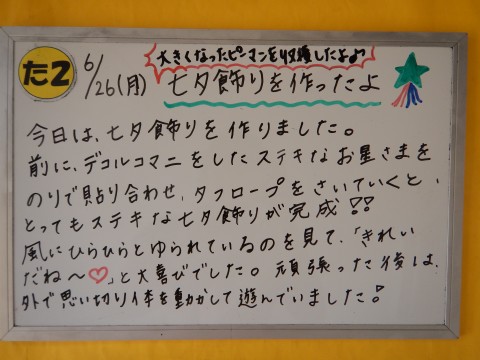 た2
6/26(月)
大きくなったピーマンを収穫したよ♪
七夕飾りを作ったよ
今日は、七夕飾りを作りました。
前に、デコルコマニをしたステキなお星さまを
のりで貼り合わせ、タフロープをさいていくと、
とってもステキな七夕飾りが完成!!
風にひらひらとゆられているのを見て、「きれい
だね～♡」と大喜びでした。頑張った後は、
外で思い切り体を動かして遊んでいました!